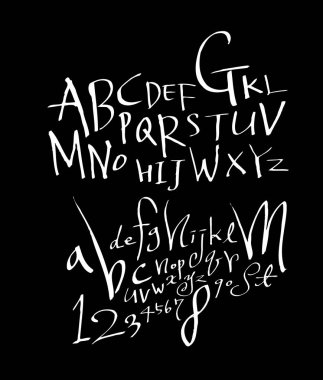 ABCDEFGKL
PQRSTUV
MNOHIJWXYZ
abdefghijklm
cnopqr
uvwxyz
1234567890st